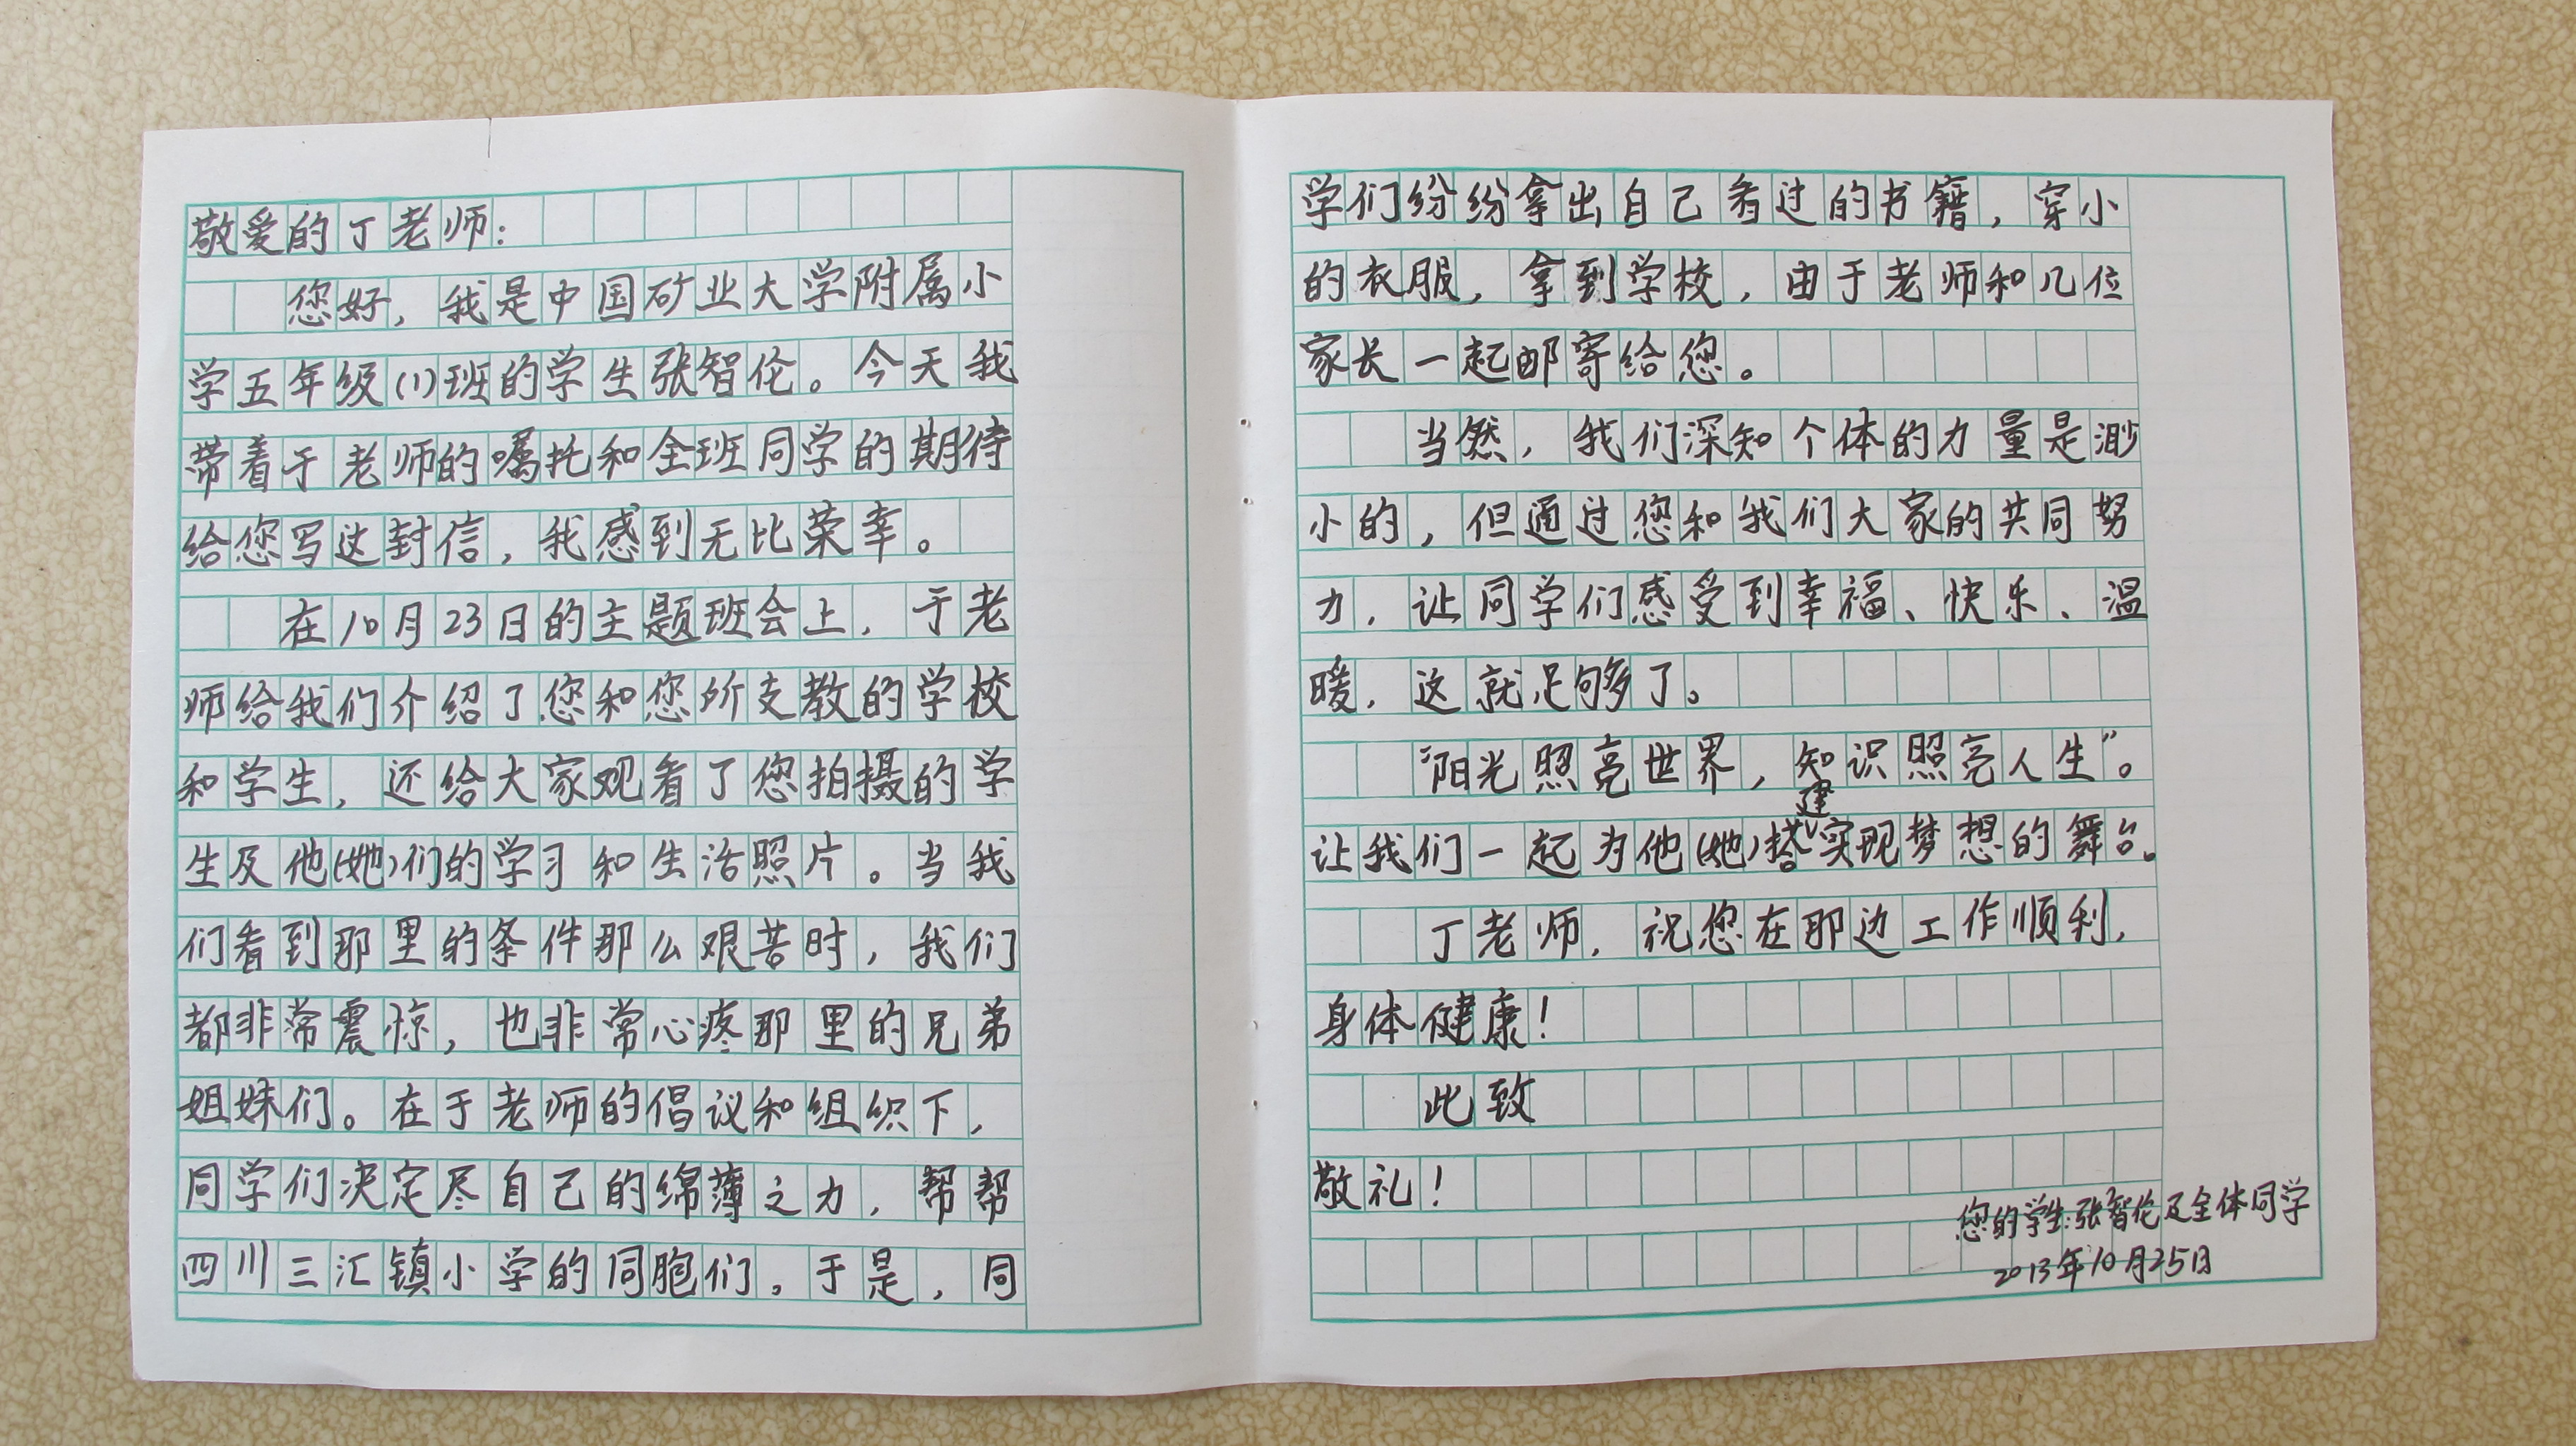 敬爱的丁老师：
您好，我是中国矿业大学附属小
学五年级(1)班的学生张智伦。今天我
带着于老师的嘱托和全班同学的期待
给您写这封信，我感到无比荣幸。
在10月23日的主题班会上，于老
师给我们介绍了您和您所支教的学校
和学生，还给大家观看了您拍摄的学
生及他(她)们的学习和生活照片。当我
们看到那里的条件那么艰苦时，我们
都非常震惊，也非常心疼那里的兄弟
姐妹们。在于老师的倡议和组织下，
同学们决定尽自己的绵薄之力，帮帮
四川三汇镇小学的同胞们。于是，同
学们纷纷拿出自己看过的书籍，穿小
的衣服，拿到学校，由于老师和几位
家长一起邮寄给您。
当然，我们深知个体的力量是渺
小的，但通过您和我们大家的共同努
力，让同学们感受到幸福、快乐、温
暖，这就足够了。
“阳光照亮世界，知识照亮人生”。
让我们一起为他(她)搭建实现梦想的舞台。
丁老师，祝您在那边工作顺利，
身体健康！
此致
敬礼！
您的学生：张智伦及全体同学
2013年10月25日